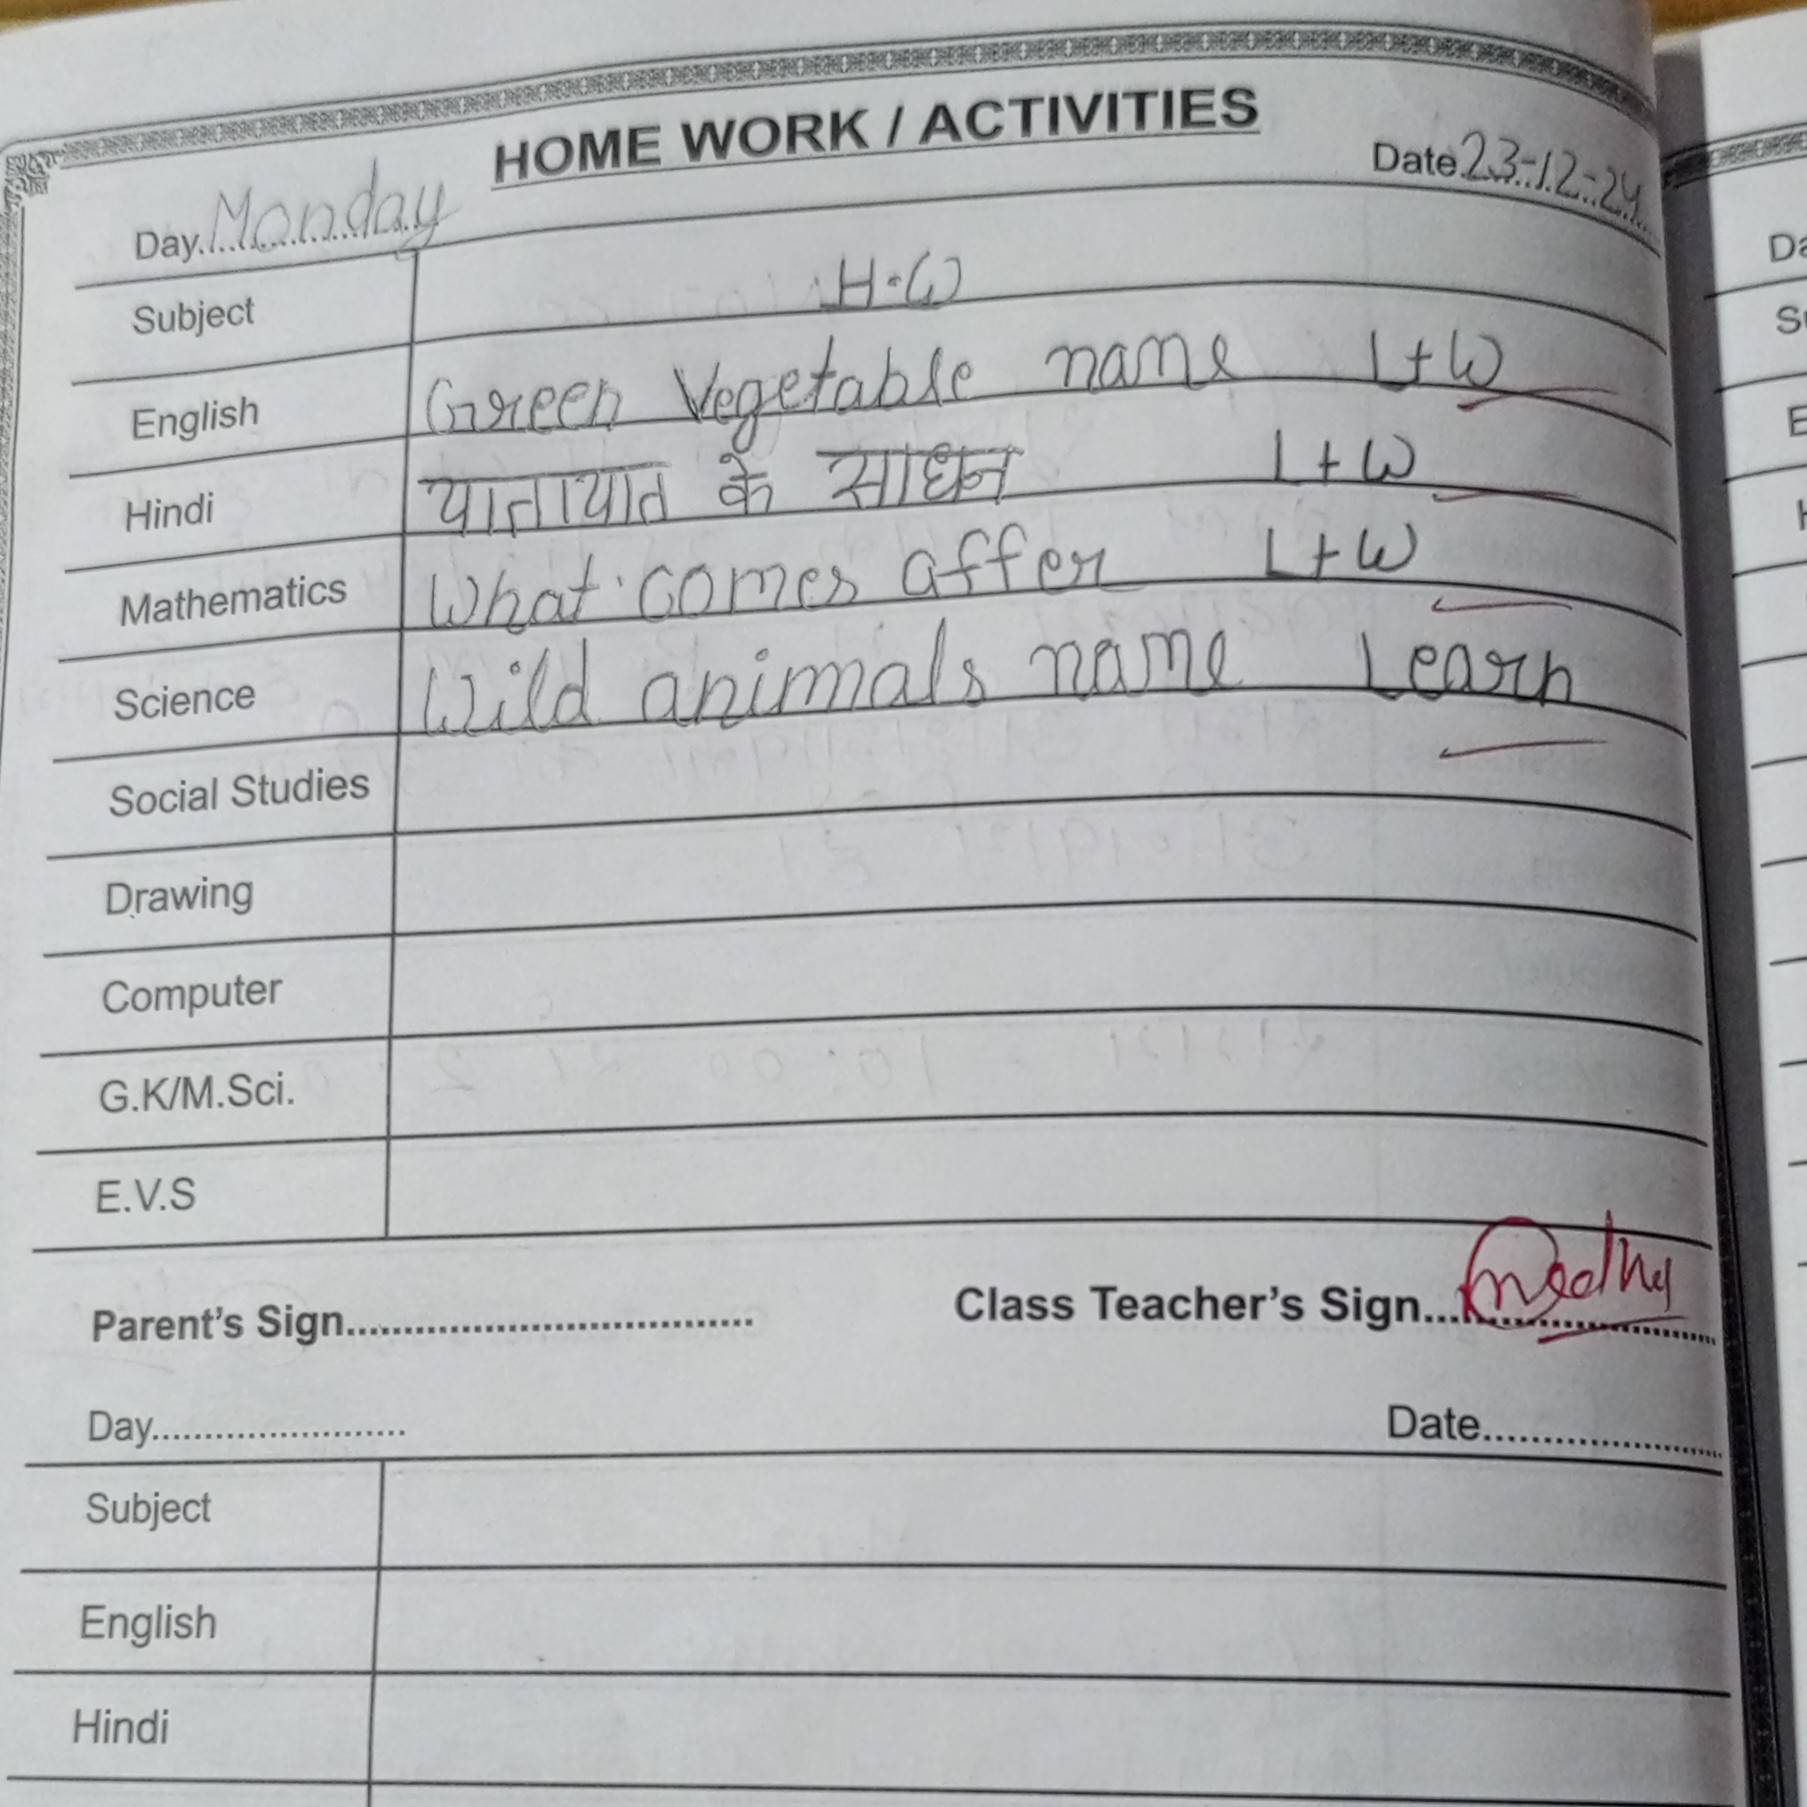 HOME WORK / ACTIVITIES
Day. Monday Date. 23-12-24
Subject H.W
English Green Vegetable name L+W
Hindi यातायात के साधन L+W
Mathematics What comes affer L+W
Science Wild animals name Learn
Social Studies
Drawing
Computer
G.K/M.Sci.
E.V.S
Parent's Sign.................................. Class Teacher's Sign...
Day........................ Date.......................
Subject
English
Hindi